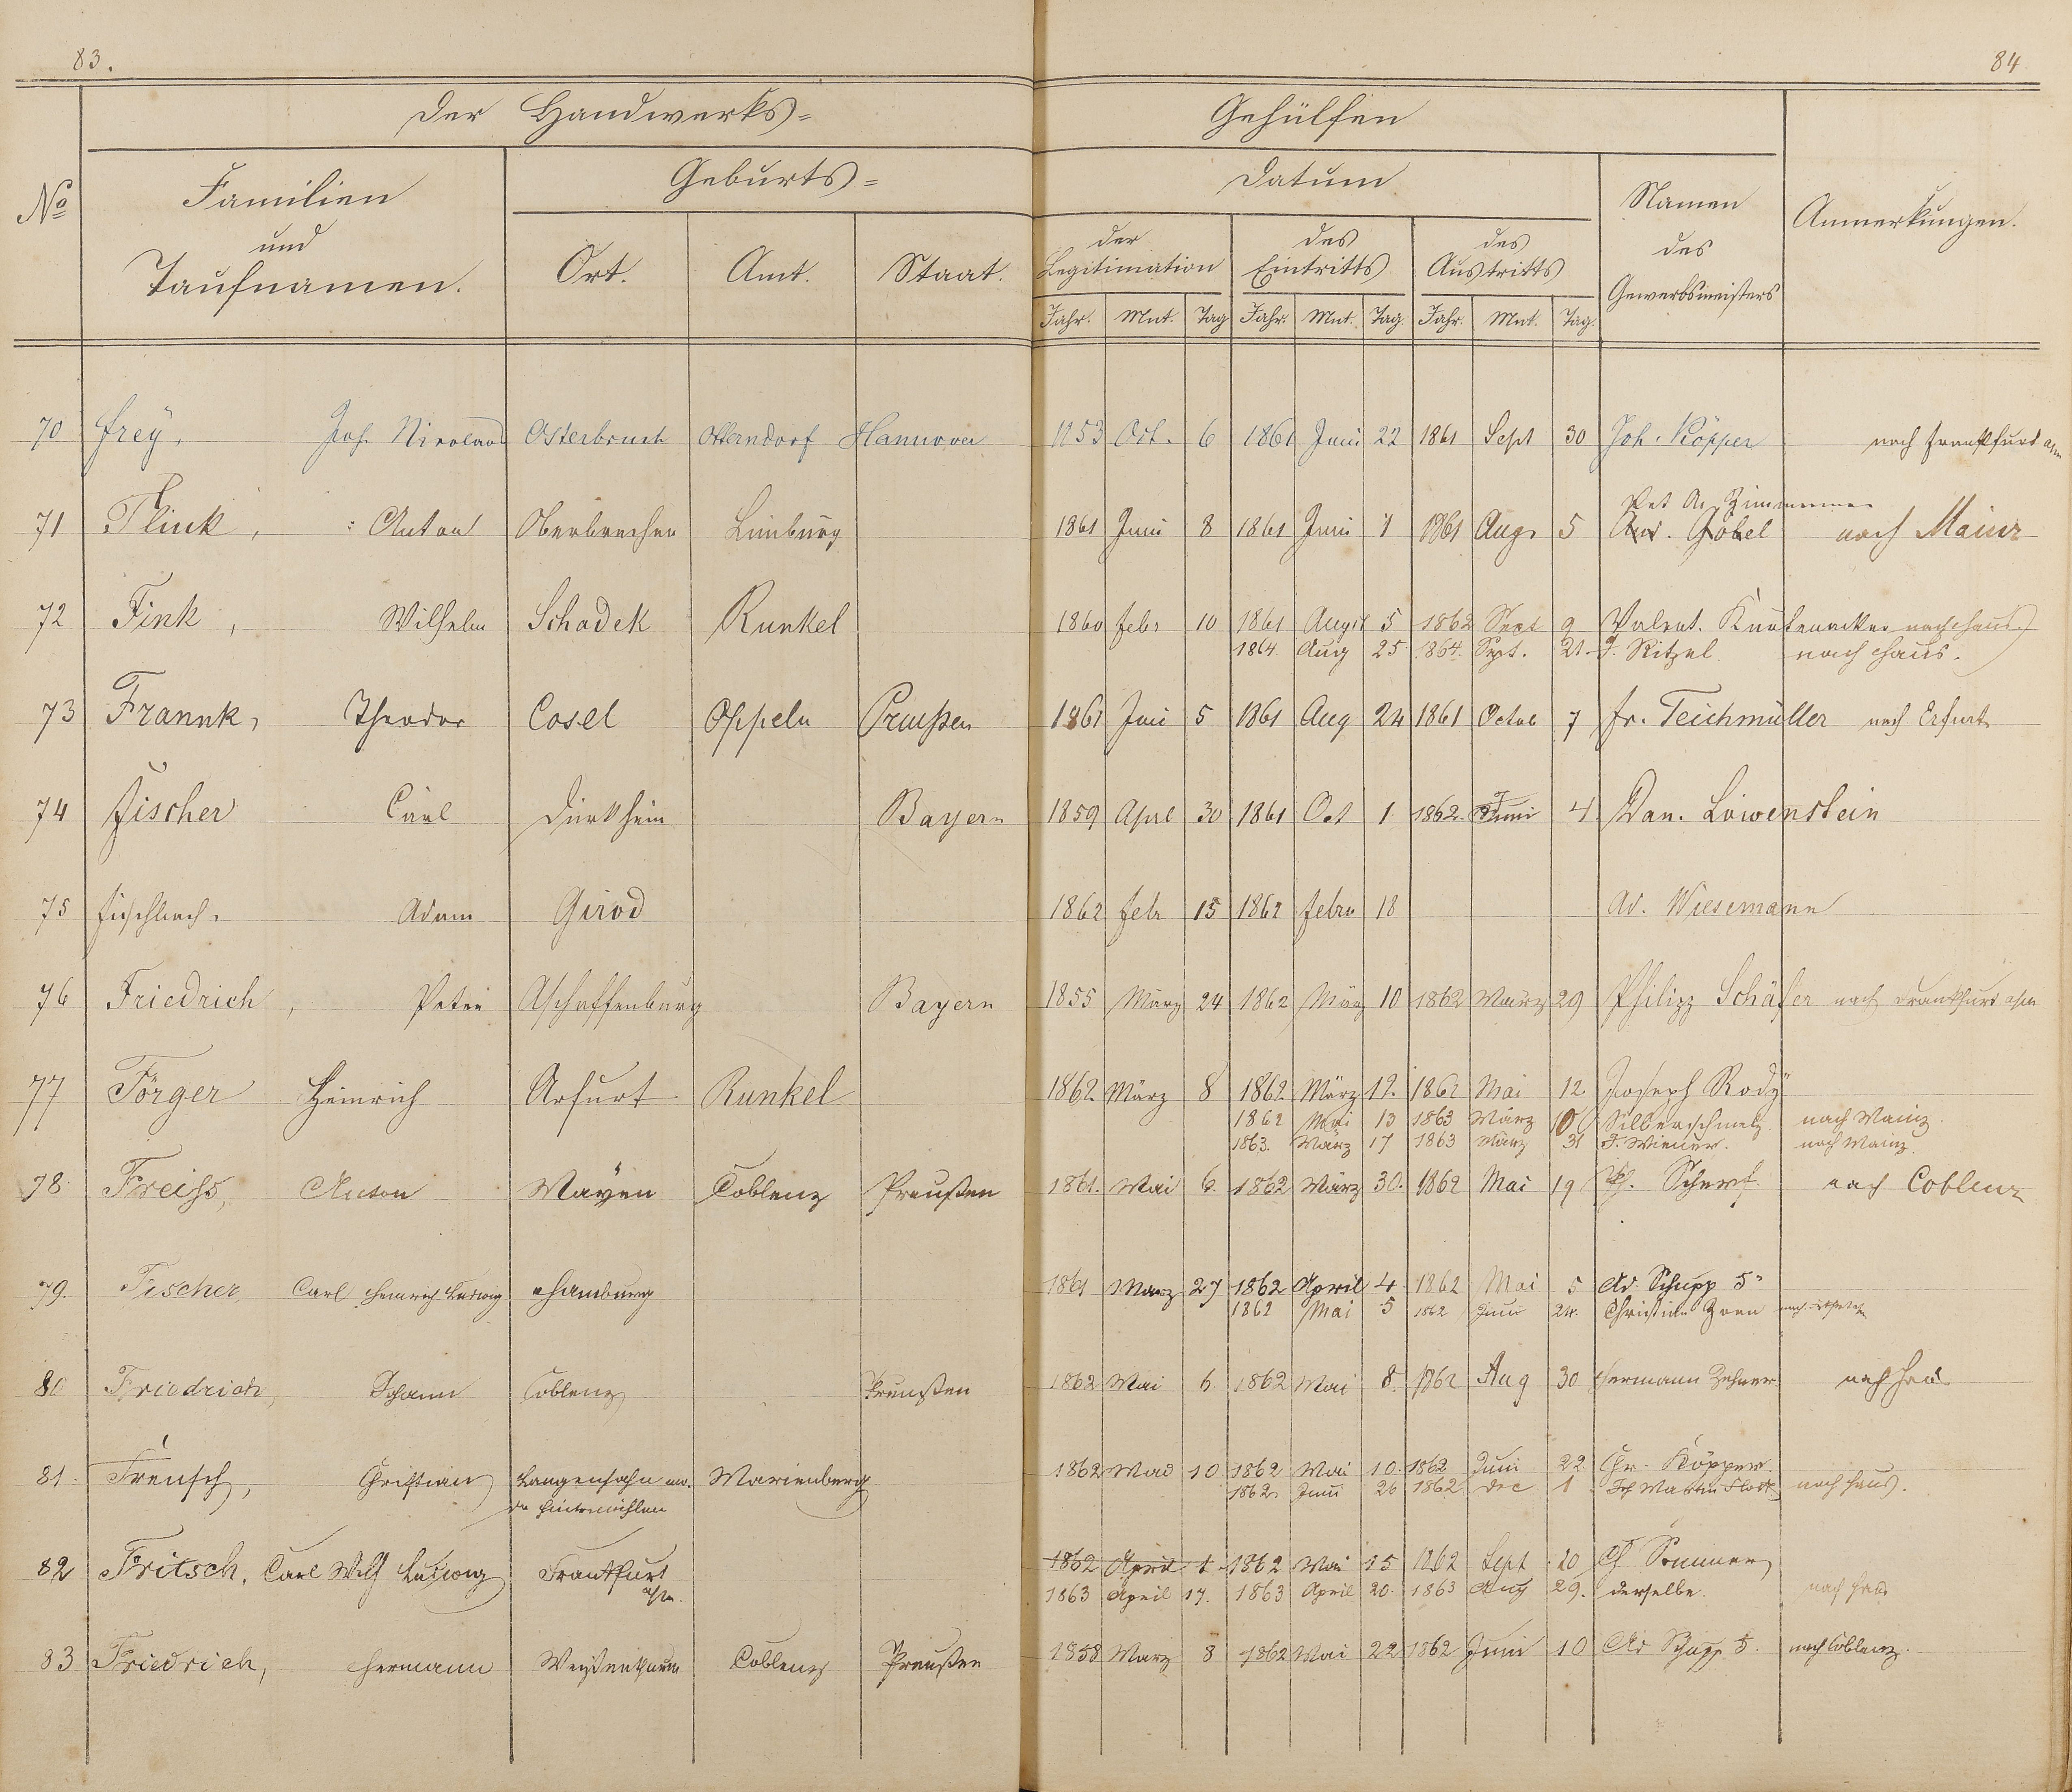 83.
84
Der Handwerks=
Gehülfen
No
Familien
und
Taufnamen.
Geburts=
Ort.
Amt.
Staat.
Datum
der
Legitimation
des
Eintritts
des
Austritts
Jahr. Mnt. Tag Jahr. Mnt. Tag. Jahr. Mnt. Tag.
Namen
des
Gewerbsmeisters
Anmerkungen.
70 Frey, Joh. Nicolaus Osterbruch Otterndorf Hannover 1853 Oct. 6 1861 Juni 22 1861 Sept 30 Joh. Köpper nach Frankfurt a/m
Zimmermann
71 Flink, Anton Oberbrechen Limburg 1861 Juni 8 1861 Juni 1 1861 Aug. 5 And. Göbel nach Mainz
72 Fink, Wilhelm Schadek Runkel 1860 Febr 10 1861 August 5 1862 Sept 9 Valent. nach Haus
1864 Aug 25 1864. Spt. 21. F. Ritzel. nach Haus.
73 Frannk, Theodor Cosel Oppeln Preußen 1861 Juni 5 1861 Aug 24 1861 Octob 7 Fr. Teichmüller nach Erfurt
74 Fischer Carl Dürkheim Bayern 1859 Aprl 30 1861 Oct 1 1862. Juni 4 Dan. Löwenstein
75 Fischbach, Adam Girod 1862 Febr 15 1862 Febru 18 Ad. Wiesemann
76 Friedrich, Peter Aschaffenburg Bayern 1855 März 24 1862 März 10 1862 März 29 Philipp Schäfer nach Frankfurt a/m
77 Förger Heinrich Arfurt Runkel 1862 März 8 1862 März 12. 1862 Mai 12 Joseph Rody
1862 Mai 13 1863 März 10 Silberschmelz. nach Mainz.
1863. März 17 1863 März 31 F. Wiener. nach Mainz.
78 Freiss, Anton Mayen Coblenz Preußen 1861. Mai 6 1862 März 30. 1862 Mai 19 Ph. Scherf. nach Coblenz
79. Fischer, Carl Heinrich Ludwig Hamburg 1861 März 27 1862 April 4. 1862 Mai 5 Ad. Schupp 5r
1862 Mai 5 1862 Juni 24. Christian Zorn
80 Friedrich, Johann Coblenz Preußen 1862 Mai 6. 1862 Mai 8. 1862 Aug 30 Hermann Zehner nach Haus
81. Frensch, Christian Langenhahn Marienberg 1862 Mai 10 1862 Mai 10. 1862 Juni 22. Chr. Köpper.
Hintermühlen 1862 Juni 26 1862 Dec 1 Martin nach Haus.
82 Fritsch, Carl Wilh Ludwig Frankfurt 1862 April 1 1862 Mai 15 1862 Sept 20 Ch Sommer
a/m. 1863 April 17. 1863 April 20. 1863 Aug 29. derselbe. nach Haus
83 Friedrich, Hermann Weißenthurm Coblenz Preußen 1858 März 8 1862 Mai 22 1862 Juni 10 Ad Schupp 5. nach Coblenz.